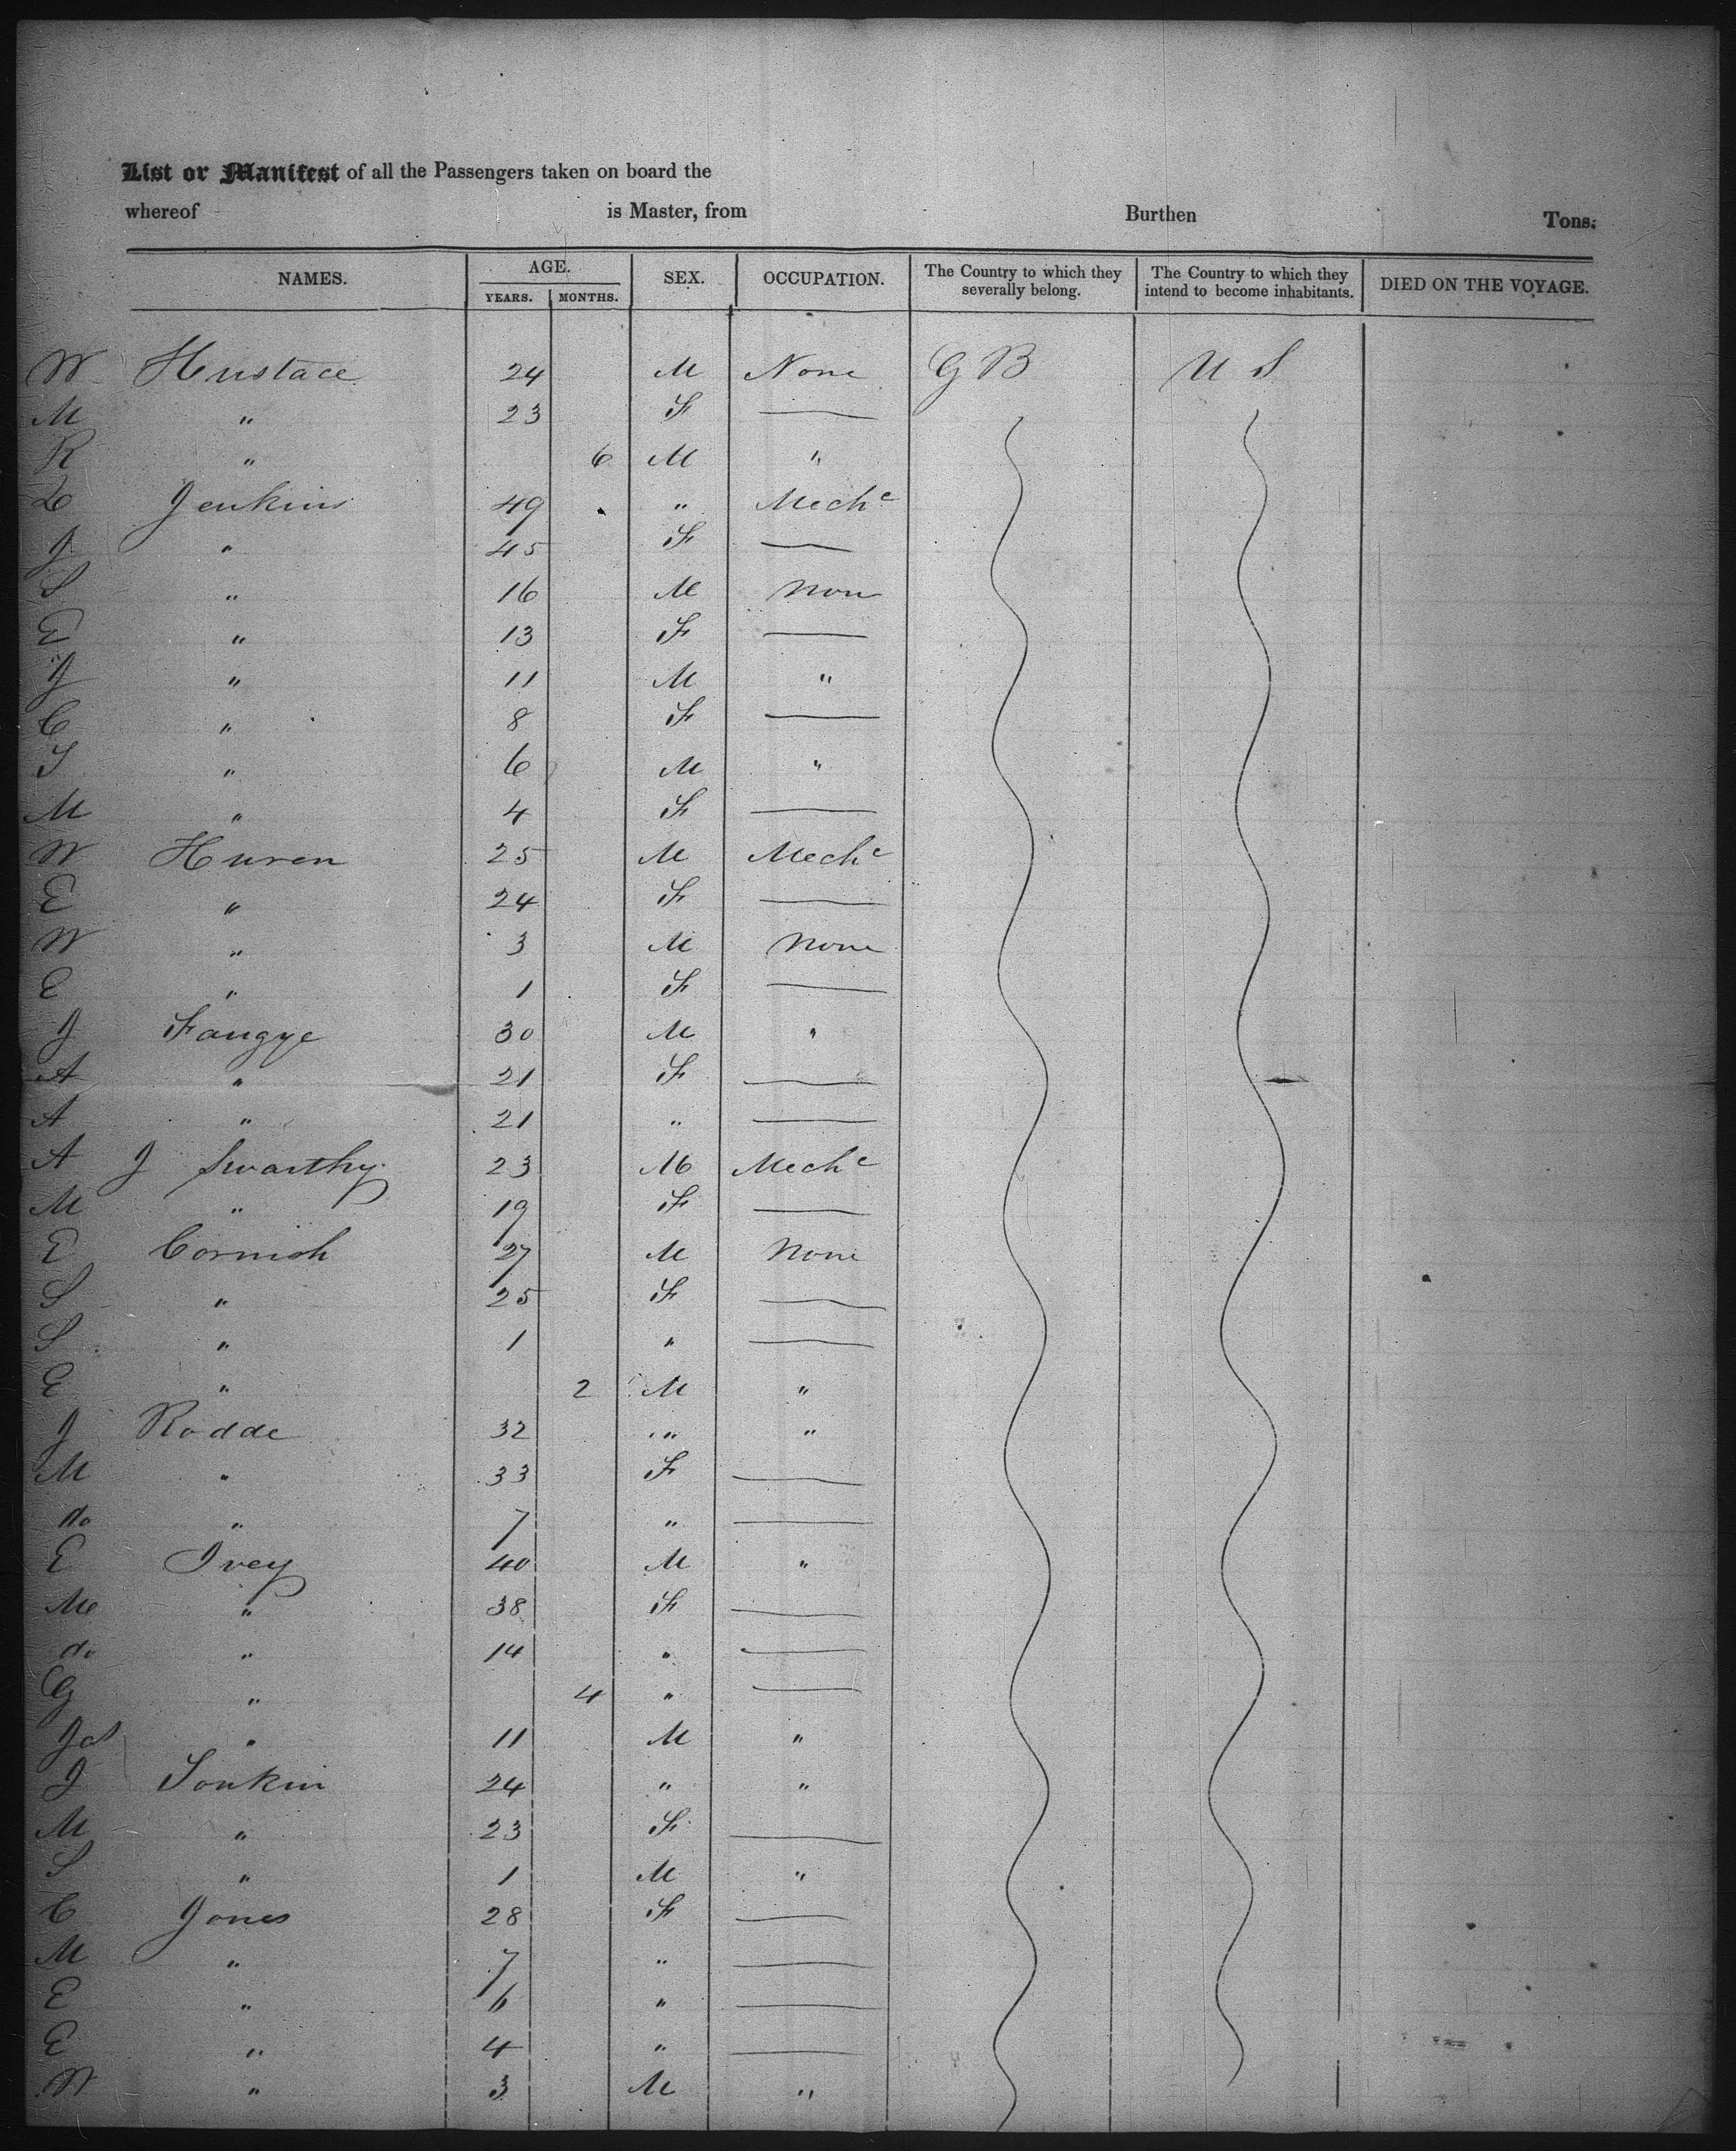 List or Manifest of all the Passengers taken on board the
whereof is Master, from Burthen Tons.
NAMES. AGE. YEARS. MONTHS. SEX. OCCUPATION. The Country to which they severally belong. The Country to which they intend to become inhabitants. DIED ON THE VOYAGE.
W Hustace 24 M None G B U S
M " 23 F —
R " 6 M "
Jenkins 49 " Mechc
J " 45 F —
S " 16 M Non
E " 13 F —
J " 11 M "
C " 8 F —
S " 6 M "
M " 4 F —
W Huren 25 M Mechc
E " 24 F —
W " 3 M None
E " 1 F —
J Faugye 30 M "
A " 21 F —
A " 21 " —
A J Swarthy 23 M Mechc
M " 19 F —
E Cornish 27 M None
S " 25 F —
S " 1 " —
E " 2 M "
J Rodde 32 " "
M " 33 F —
do " 7 " —
E Ivey 40 M "
M " 38 F —
do " 14 " —
G " 4 " —
Jas " 11 M "
J Sonkin 24 " "
M " 23 F —
S " 1 M "
C Jones 28 F —
M " 7 " —
E " 6 " —
E " 4 " —
W " 3 M "